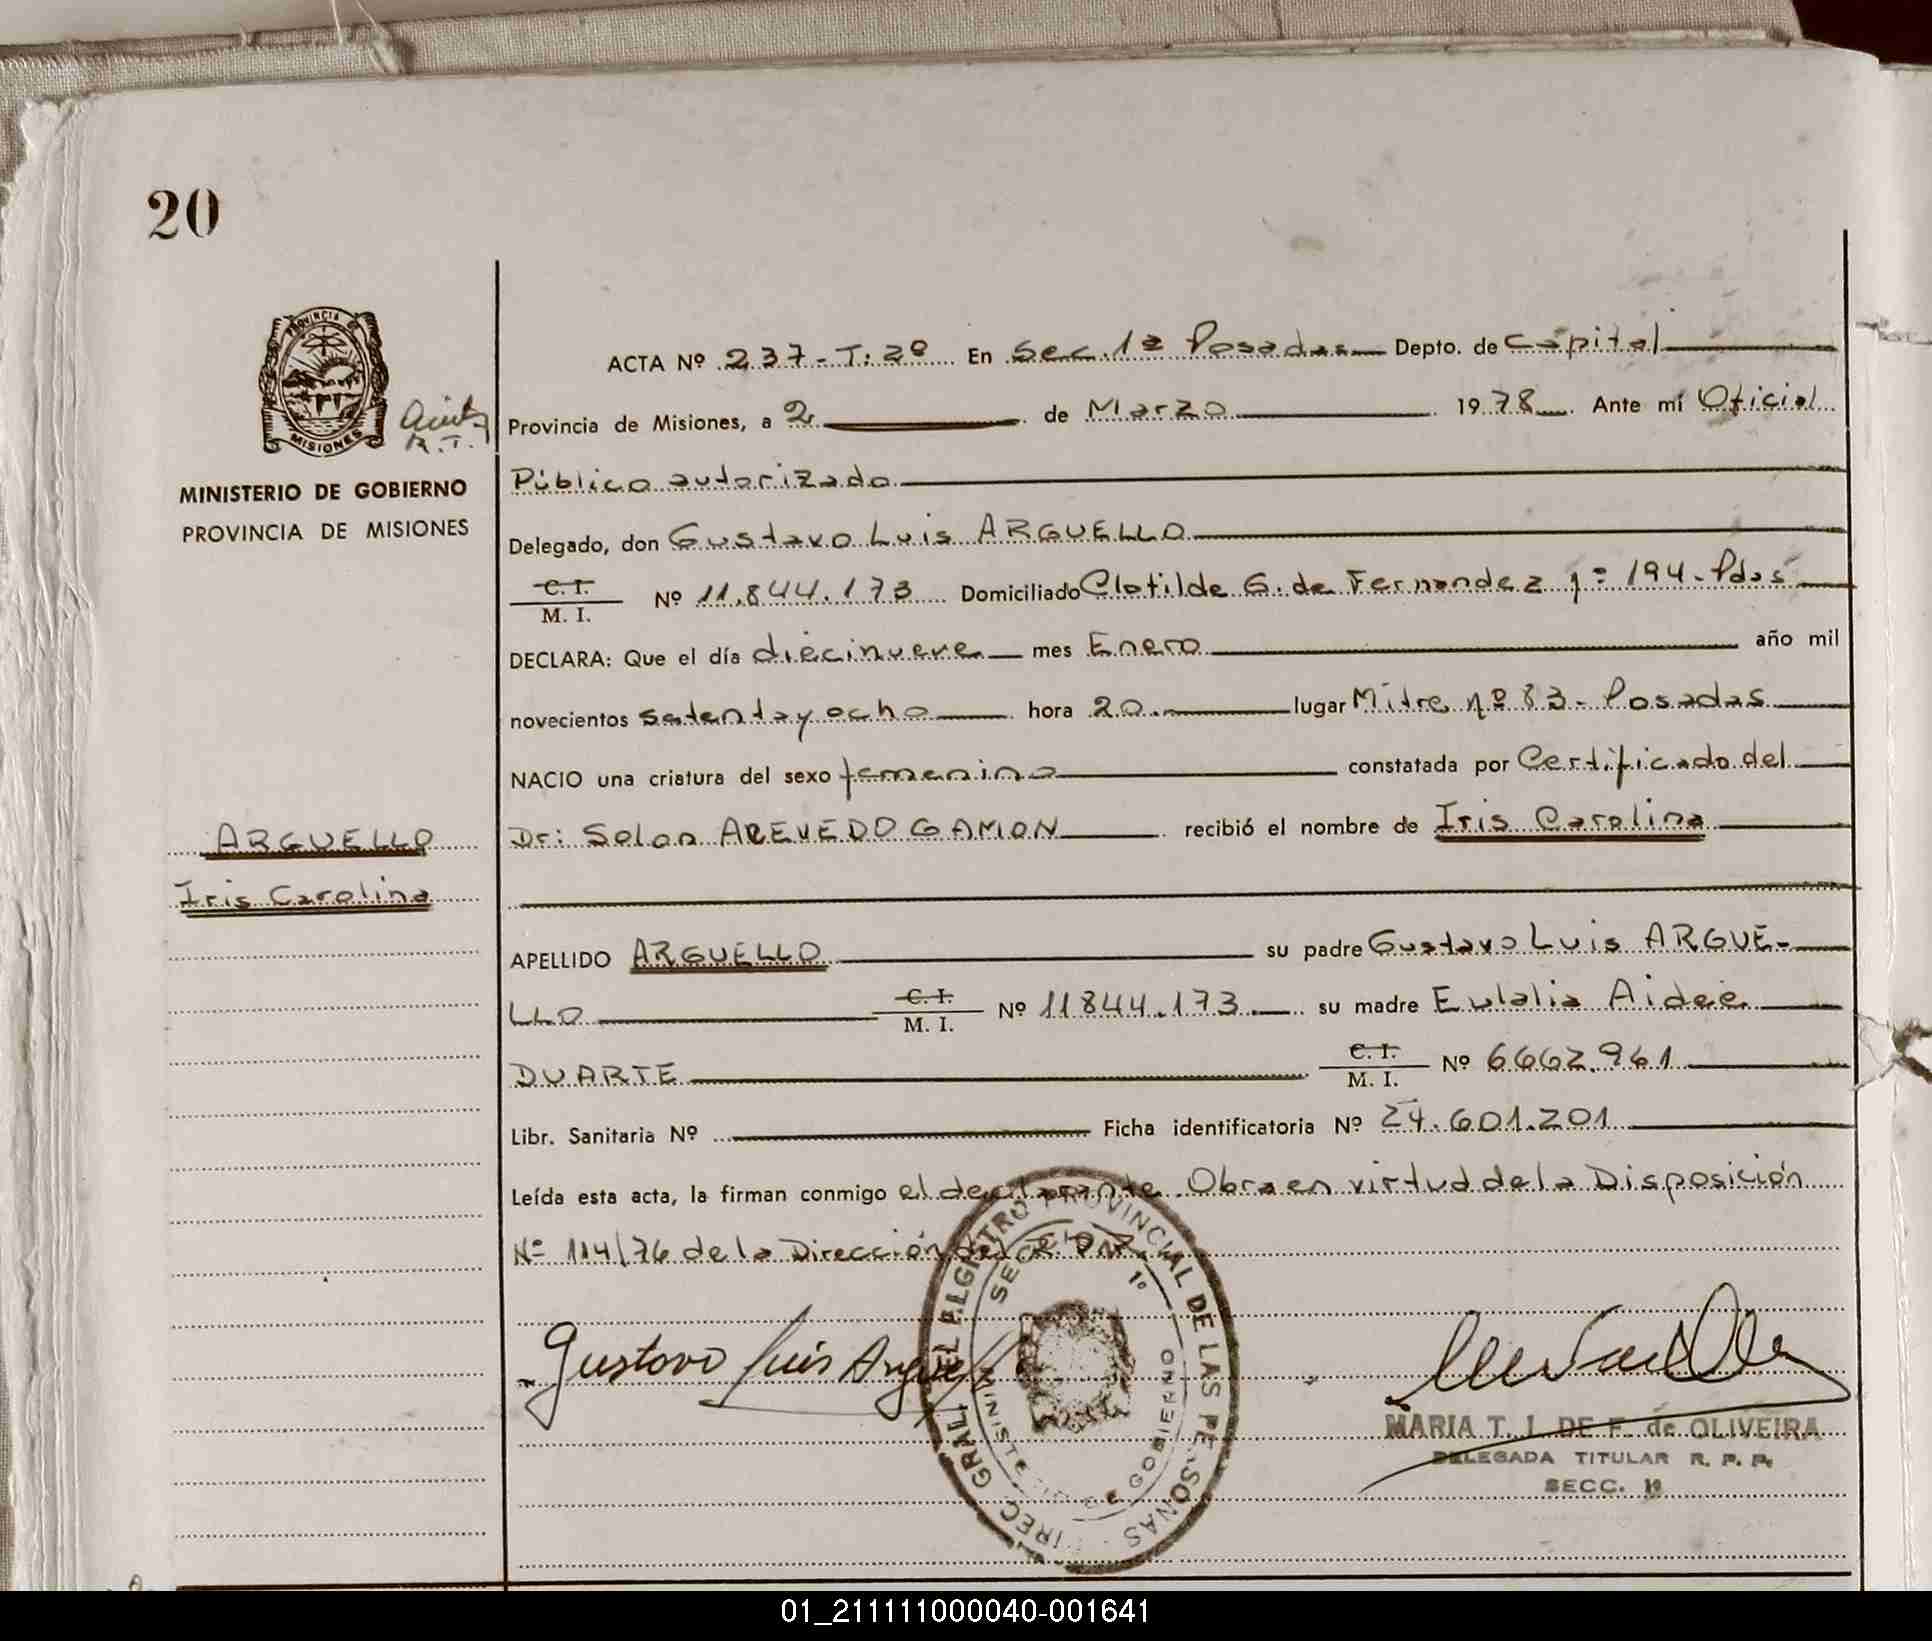 20
PROVINCIA DE
MISIONES
R.T.
MINISTERIO DE GOBIERNO
PROVINCIA DE MISIONES
ARGUELLO
Iris Carolina
ACTA Nº 237-T:2º En Sec. 1ª Posadas Depto. de Capital
Provincia de Misiones, a 2 de Marzo 1978 Ante mí Oficial
Público autorizado
Delegado, don Gustavo Luis ARGUELLO
C. I.
M. I. Nº 11.844.173 Domiciliado Clotilde G. de Fernandez nº 194-Pdas
DECLARA: Que el día diecinueve mes Enero año mil
novecientos setenta y ocho hora 20. lugar Mitre nº 83- Posadas
NACIO una criatura del sexo femenino constatada por Certificado del
Dr: Solon ACEVEDO GAMON recibió el nombre de Iris Carolina
APELLIDO ARGUELLO su padre Gustavo Luis ARGUE-
LLO C. I.
M. I. Nº 11844.173 su madre Eulalia Aidee
DUARTE C. I.
M. I. Nº 6662.961
Libr. Sanitaria Nº Ficha identificatoria Nº 24.601.201
Leída esta acta, la firman conmigo el declarante. Obra en virtud de la Disposición
Nº 114/76 de la Dirección del
Gustavo Luis Arguello
REGISTRO PROVINCIAL DE LAS PERSONAS
SECCION 1º
MINISTERIO DE GOBIERNO
MARIA T. J. DE F. de OLIVEIRA
DELEGADA TITULAR R. P. P.
SECC. 1ª
01_211111000040-001641